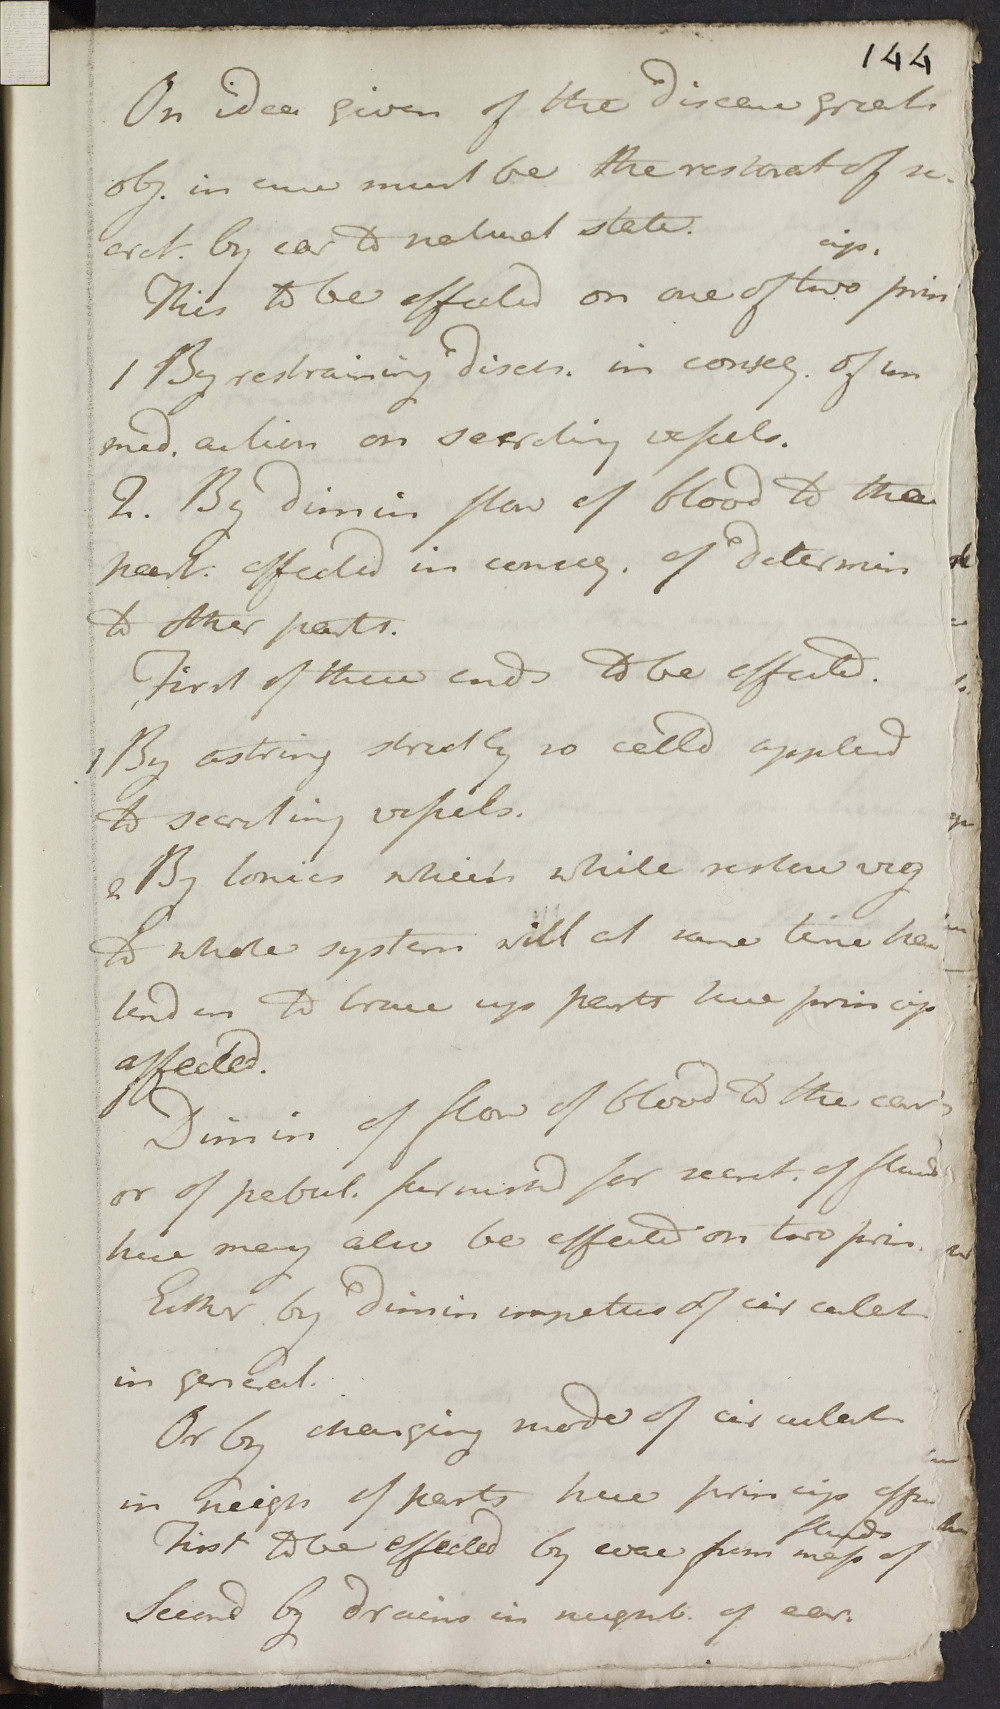 144
On idea given of the disease great
obj. in cure must be the restorat of se-
cret. by ear to natural state.
This to be effected on one of two prin
cip.
1 By restraining disch. in conseq. of im
med. action on secreting vessels.
2. By dimin flow of blood to the
part. affected in conseq. of determin
to other parts.
First of these ends to be effected.
1 By astring strictly so calld applied
to secreting vessels.
2 By tonics which while restore vig
to whole system will at same time have
tend en to brace up parts here princip
affected.
Dimin of flow of blood to the ear
or of pabul. furnishd for secret. of fluid
here may also be effected on two prin.
Either by dimin impetus of circulat
in general.
Or by changing mode of circulat
in neigh of parts here princip affec
First to be effected by evac from mass of
fluids
Second by drains in neighb. of ear.